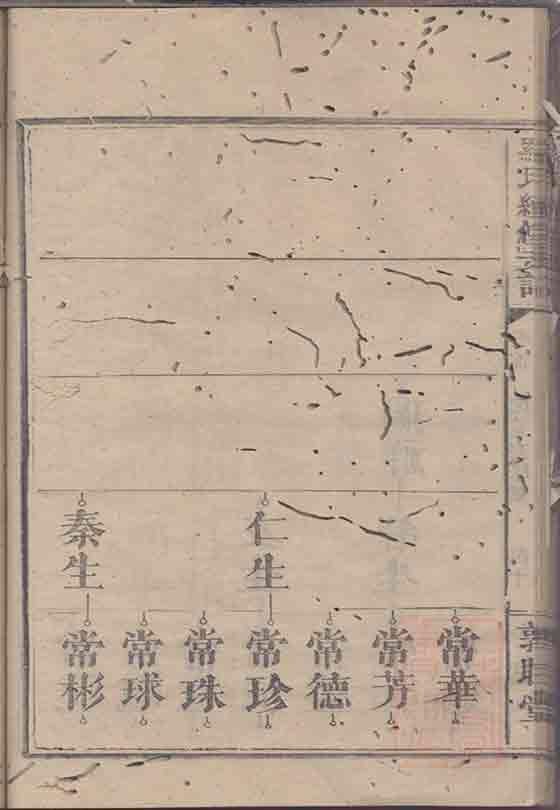 羅氏續修支譜
敦睦堂
常華
常芳
常德
仁生
常珍
常珠
常球
秦生
常彬